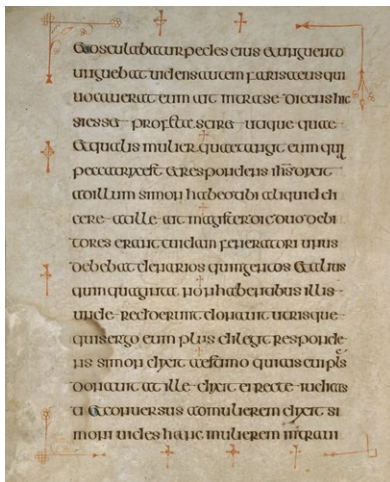 & osculabatur pedes eius & unguento
unguebat uidens autem farisaeus qui
uocauerat eum ait intra se dicens hic
si esset profeta sciret utique quae
& qualis mulier quae tangit eum quia
peccatrix est & respondens ihs dixit
ad illum simon habeo tibi aliquid di
cere at ille ait magister dic duo debi
tores erant cuidam feneratori unus
debebat denarios quingentos & alius
quinquaginta non habentibus illis
unde redderent donauit utrisque
quis ergo eum plus diligit responde
ns simon dixit aestimo quia is cui pls
donauit at ille dixit ei recte iudicas
ti & conuersus ad mulierem dixit si
moni uides hanc mulierem intraui